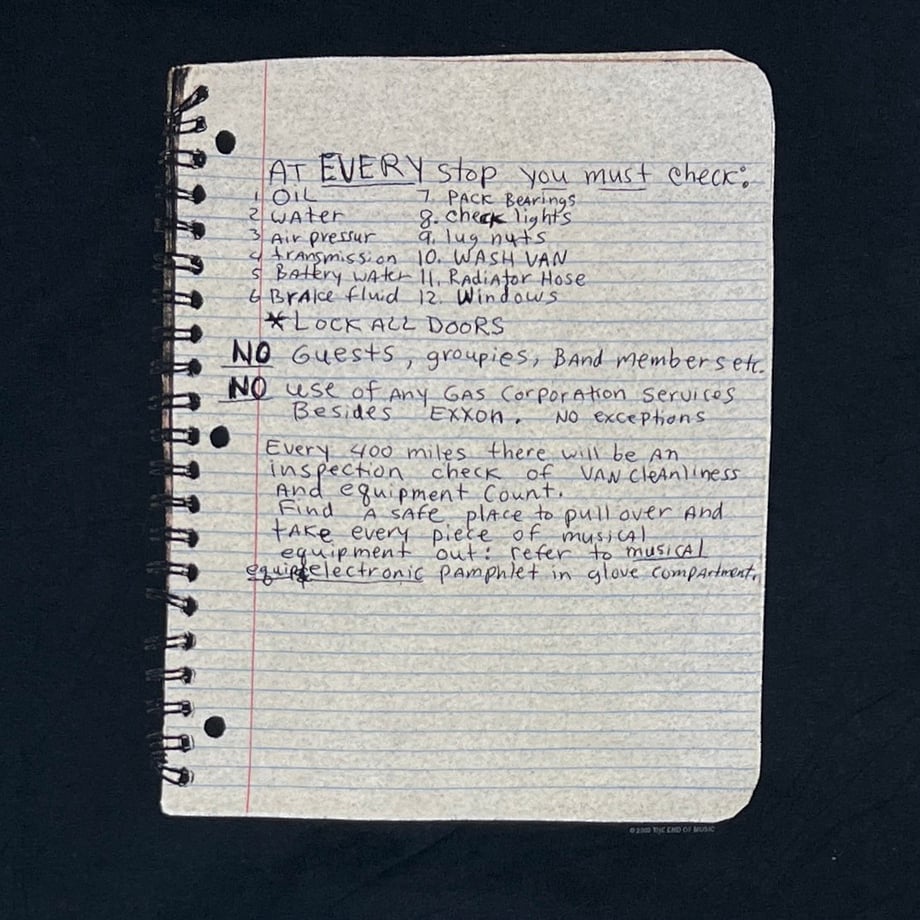 AT EVERY stop you must check:
1 OIL 7. PACK BEARINGS
2 WATER 8. check lights
3 Air pressur 9. lug nuts
4 transmission 10. WASH VAN
5 Battery water 11. Radiator Hose
6 Brake fluid 12. Windows
*LOCK ALL DOORS
NO Guests, groupies, BAND members etc.
NO use of any GAS Corporation services
Besides EXXON. NO exceptions
Every 400 miles there will be an
inspection check of VAN cleanliness
And equipment count.
Find A safe place to pull over and
take every piece of musical
equipment out: refer to musical
electronic pamphlet in glove compartment.
© 2003 THE END OF MUSIC